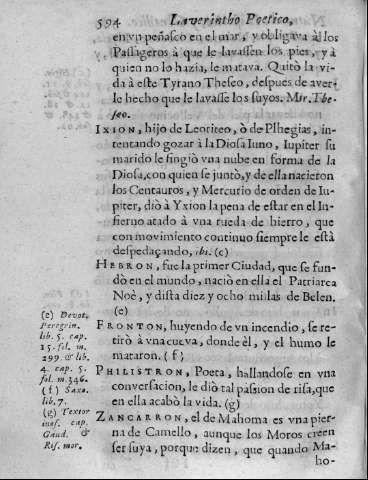 594 Laverintho Poetico,
en vn peñasco en el mar, y obligava à los
Passageros à que le lavassen los pies, y à
quien no lo hazia, le matava. Quitò la vi-
da à este Tyrano Theseo, despues de aver-
le hecho que le lavasse los suyos. Mir. The-
seo.
IXION, hijo de Leoriteo, ò de Plhegias, in-
tentando gozar à la Diosa Iuno, Iupiter su
marido le fingiò vna nube en forma de la
Diosa, con quien se juntò, y de ella nacieron
los Centauros, y Mercurio de orden de Iu-
piter, diò à Yxion la pena de estar en el In-
fierno atado à vna rueda de hierro, que
con movimiento continuo siempre le està
despedaçando, ibi. (c)
HEBRON, fue la primer Ciudad, que se fun-
dò en el mundo, naciò en ella el Patriarca
Noè, y dista diez y ocho millas de Belen.
(e)
FRONTON, huyendo de vn incendio, se re-
tirò à vna cueva, donde èl, y el humo le
mataron. (f)
PHILISTRON, Poeta, hallandose en vna
conversacion, le diò tal passion de risa, que
en ella acabò la vida. (g)
ZANCARRON, el de Mahoma es vna pier-
na de Camello, aunque los Moros creen
ser suya, porque dizen, que quando Ma-
ho-
(e) Devot.
Peregrin.
lib. 5. cap.
15. fol. m.
299. & lib.
4. cap. 5.
fol. m. 346.
(f) Saxo.
lib. 7.
(g) Textor
inof. cap.
Gaud. &
Ris. mor.